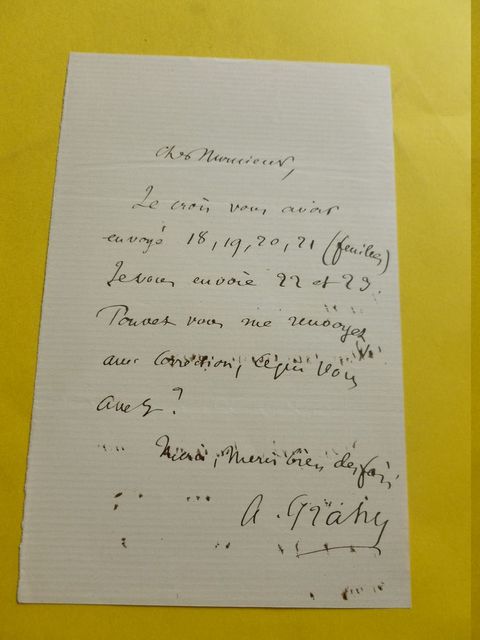 Cher Monsieur,
Je crois vous avoir
envoyé 18, 19, 20, 21 (feuilles)
Je vous envoie 22 et 23.
Pouvez vous me renvoyer
avec correction, ce que vous
avez?
Merci, merci bien des fois
A. Gratry